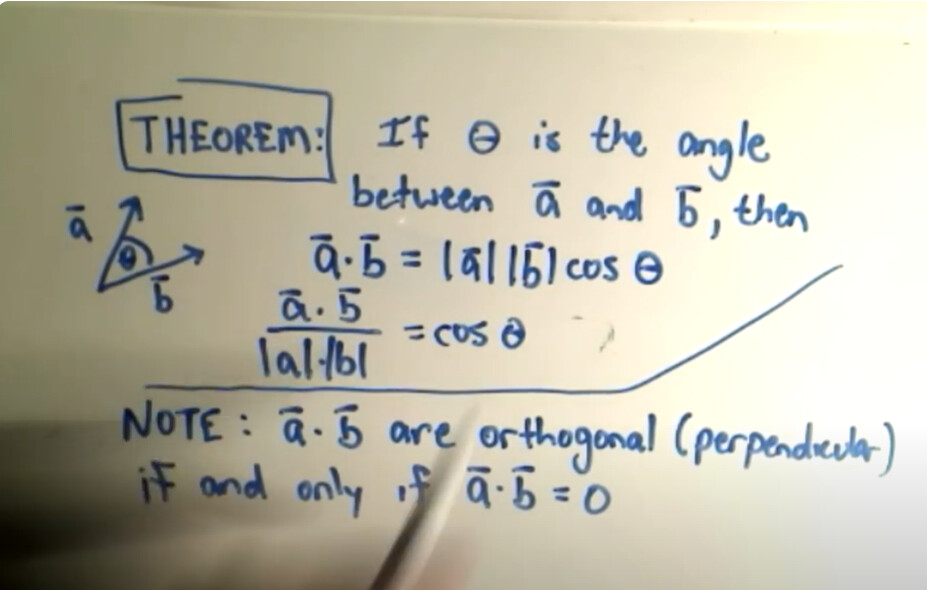 THEOREM: If θ is the angle
between a̅ and b̅, then
a̅
θ
b̅
a̅·b̅ = |a̅||b̅| cos θ
a̅·b̅
|a|·|b| = cos θ
NOTE: a̅·b̅ are orthogonal (perpendicular)
if and only if a̅·b̅ = 0